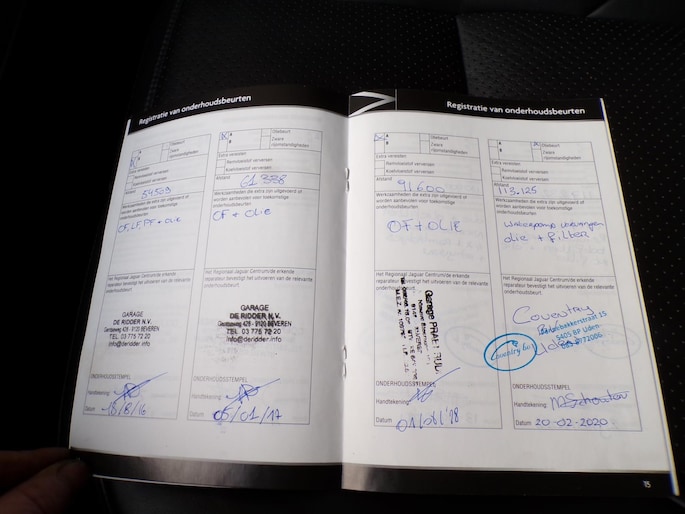 Registratie van onderhoudsbeurten
A
B
Oliebeurt
Zware
rijomstandigheden
Extra vereisten
Remvloeistof verversen
Koelvloeistof verversen
Afstand
54569
Werkzaamheden die extra zijn uitgevoerd of
worden aanbevolen voor toekomstige
onderhoudsbeurten
OF, LF, PF + OLIE
Het Regionaal Jaguar Centrum/de erkende
reparateur bevestigt het uitvoeren van de relevante
onderhoudsbeurt.
GARAGE
DE RIDDER N.V.
Gentseweg 428 - 9120 BEVEREN
TEL. 03 775 72 20
info@deridder.info
ONDERHOUDSSTEMPEL
Handtekening
Datum
A
B
Oliebeurt
Zware
rijomstandigheden
Extra vereisten
Remvloeistof verversen
Koelvloeistof verversen
Afstand
61 338
Werkzaamheden die extra zijn uitgevoerd of
worden aanbevolen voor toekomstige
onderhoudsbeurten
OF + OLIE
Het Regionaal Jaguar Centrum/de erkende
reparateur bevestigt het uitvoeren van de relevante
onderhoudsbeurt.
GARAGE
DE RIDDER N.V.
Gentseweg 428 - 9120 BEVEREN
TEL. 03 775 72 20
info@deridder.info
ONDERHOUDSSTEMPEL
Handtekening
Datum
05/01/17
Registratie van onderhoudsbeurten
A
B
Oliebeurt
Zware
rijomstandigheden
Extra vereisten
Remvloeistof verversen
Koelvloeistof verversen
Afstand
91.600
Werkzaamheden die extra zijn uitgevoerd of
worden aanbevolen voor toekomstige
onderhoudsbeurten
OF + OLIE
Het Regionaal Jaguar Centrum/de erkende
reparateur bevestigt het uitvoeren van de relevante
onderhoudsbeurt.
Garage
ONDERHOUDSSTEMPEL
Handtekening
Datum
A
B
Oliebeurt
Zware
rijomstandigheden
Extra vereisten
Remvloeistof verversen
Koelvloeistof verversen
Afstand
113.125
Werkzaamheden die extra zijn uitgevoerd of
worden aanbevolen voor toekomstige
onderhoudsbeurten
Waterpomp vervangen
olie + filter
Het Regionaal Jaguar Centrum/de erkende
reparateur bevestigt het uitvoeren van de relevante
onderhoudsbeurt.
Coventry
5405 BP Uden
ONDERHOUDSSTEMPEL
Handtekening
M Schouten
Datum
20-02-2020
15